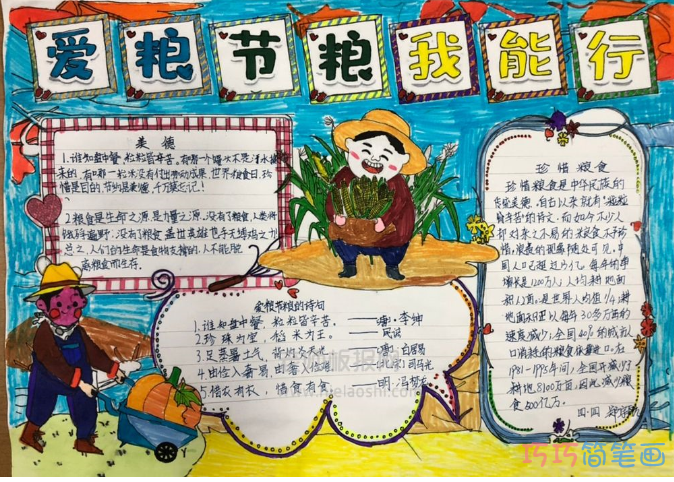 爱粮节粮我能行
美德
1.谁知盘中餐,粒粒皆辛苦。有哪一个馒头不是
来的,有哪一粒米没有付出劳动成果,世界粮食日,珍
惜是目的,节约品美德,千万莫忘记!
2.粮食是生命之源,是力量之源,没有了粮食,人类将
饿殍遍野,没有了粮食,盖世英雄也手无缚鸡之力
总之,人们的生命是食物支撑的,人不能脱
离粮食而生存。
爱粮节粮的诗句
1.谁知盘中餐,粒粒皆辛苦。——唐·李绅
2.珍珠为宝,稻米为王。——民谚
3.足蒸暑土气,——唐·白居易
4.由俭入奢易,由奢入俭难。——北宋·司马光
5.惜衣有衣,惜食有食。——明·冯梦龙
珍惜粮食
珍惜粮食是中华民族的
传统美德,自古以来就有"粒粒
皆辛苦的诗文,而如今不少人
却对来之不易的粮食不予珍
惜,浪费的现象随处可见,中
国人口已超过十几亿,每年的净
增长是1200万人,人均耕地面
积和人口,是世界人均值1/4;耕
地面积正以每年30多万亩的
速度减少;全国40%的城市人
口消耗的粮食依靠进口。在
1981—1995年间,全国共减少了
耕地8100万亩,因此减少粮
食500亿斤。
四·四
巧巧简笔画